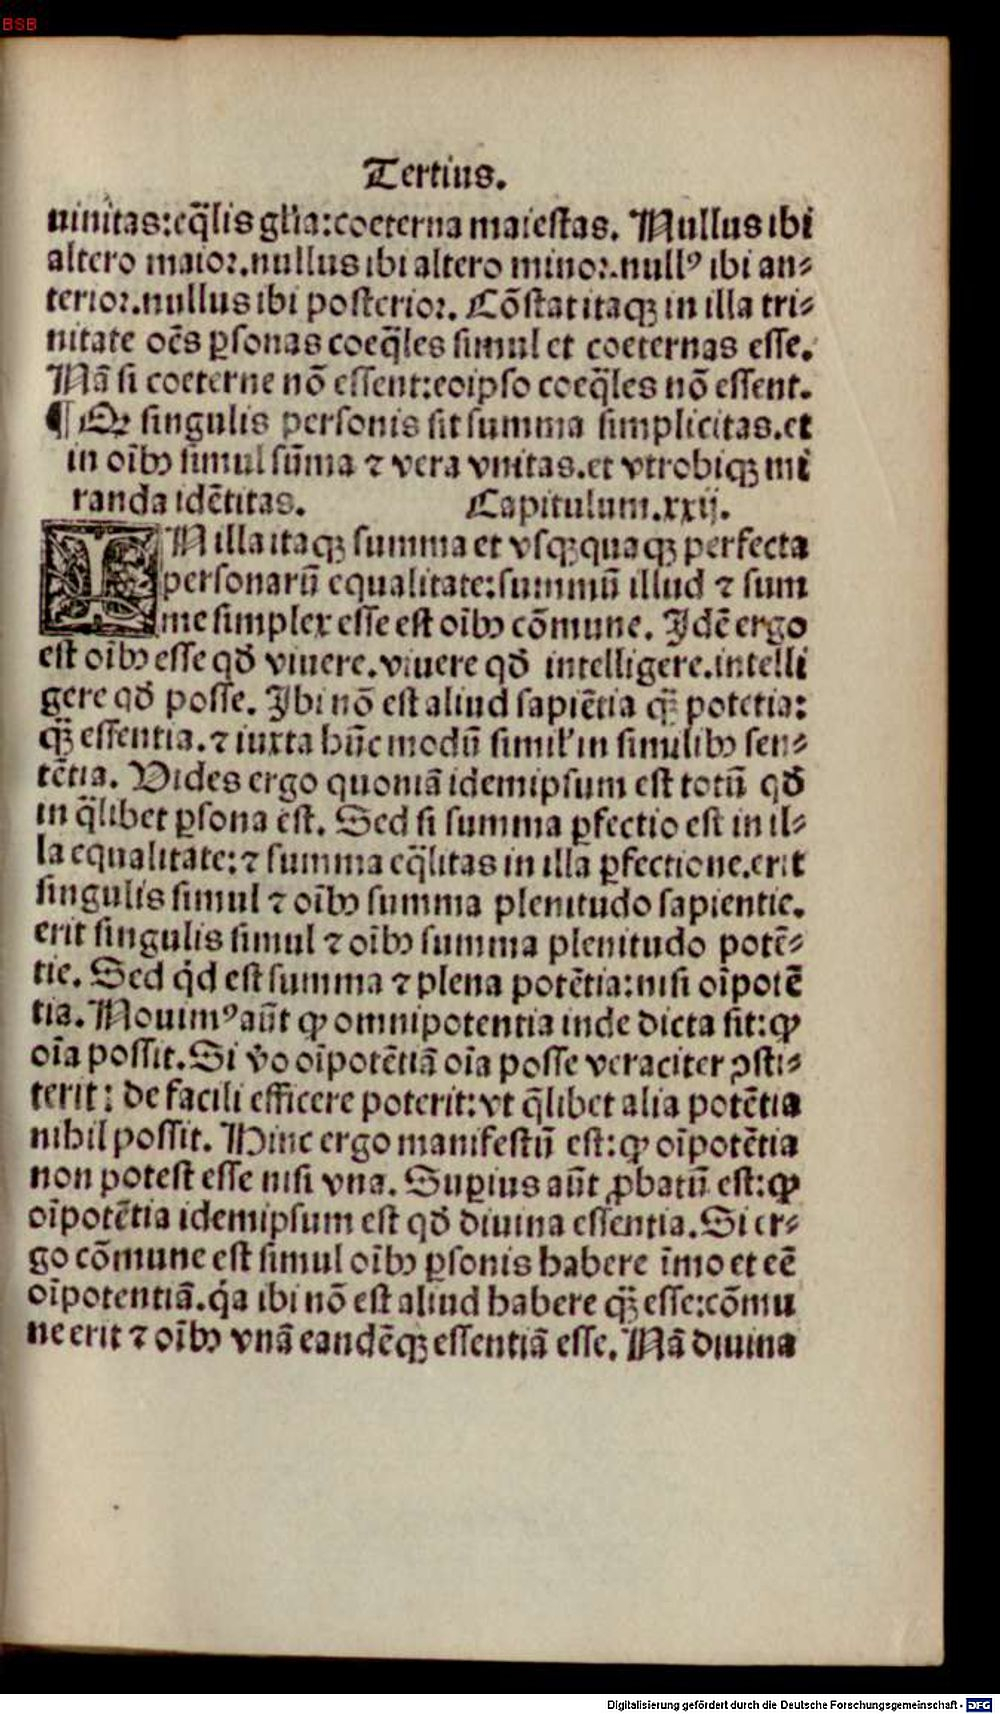 BSB
Tertius.
uinitas:eq̃lis gl'ia:coeterna maiestas. Nullus ibi
altero maior.nullus ibi altero minor.null⁹ ibi an⸗
terior.nullus ibi posterior. Cõstat itaqꝫ in illa tri⸗
nitate oẽs ꝑsonas coeq̃les simul et coeternas esse.
Nã si coeterne nõ essent:eoipso coeq̃les nõ essent.
¶ Qꝛ singulis personis sit summa simplicitas.et
in oĩbꝫ simul sũma ⁊ vera vnitas.et vtrobiqꝫ mi
randa idẽtitas. Capitulum.xxij.
IN illa itaqꝫ summa et vsqꝫquaqꝫ perfecta
personarũ equalitate:summũ illud ⁊ sum
me simplex esse est oĩbꝫ cõmune. Idẽ ergo
est oĩbꝫ esse qđ viuere.viuere qđ intelligere.intelli
gere qđ posse. Ibi nõ est aliud sapiẽtia qꝫ̃ potẽtia:
qꝫ̃ essentia.⁊ iuxta hũc modũ simil'in similibꝫ sen⸗
tẽtia. Vides ergo quoniã idemipsum est totũ qđ
in q̃libet ꝑsona est. Sed si summa ꝑfectio est in il⸗
la equalitate:⁊ summa eq̃litas in illa ꝑfectione.erit
singulis simul ⁊ oĩbꝫ summa plenitudo sapientie.
erit singulis simul ⁊ oĩbꝫ summa plenitudo potẽ⸗
tie. Sed qͥd est summa ⁊ plena potẽtia:nisi oĩpotẽ
tia. Nouim⁹ aũt ꝙ omnipotentia inde dicta sit:ꝙ
oĩa possit. Si v̊o oĩpotẽtiã oĩa posse veraciter ꝯsti⸗
terit: de facili efficere poterit:vt q̃libet alia potẽtia
nihil possit. Hinc ergo manifestũ est:ꝙ oĩpotẽtia
non potest esse nisi vna. Suꝑius aũt ꝓbatũ est:ꝙ
oĩpotẽtia idemipsum est qđ diuina essentia. Si er⸗
go cõmune est simul oĩbꝫ ꝑsonis habere ĩmo et eẽ
oĩpotentiã.qͣa ibi nõ est aliud habere qꝫ̃ esse:cõmu
ne erit ⁊ oĩbꝫ vnã eandẽqꝫ essentiã esse. Nã diuina
Digitalisierung gefördert durch die Deutsche Forschungsgemeinschaft - DFG